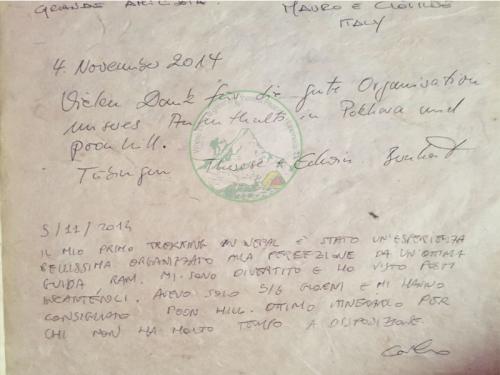 GRANDE AMICIZIA. MAURO E CLOTILDE
ITALY
4. November 2014
Vielen Dank für die gute Organisation
unseres Aufenthalts in Pokhara und
poon hill.
Tübingen Therese & Edwin
5/11/2014
IL MIO PRIMO TREKKING IN NEPAL È STATO UN'ESPERIENZA
BELLISSIMA ORGANIZZATO ALLA PERFEZIONE DA UN'OTTIMA
GUIDA, RAM. MI SONO DIVERTITO E HO VISTO POSTI
INCANTEVOLI. AVEVO SOLO 5/6 GIORNI E MI HANNO
CONSIGLIATO POON HILL. OTTIMO ITINERARIO PER
CHI NON HA MOLTO TEMPO A DISPOSIZIONE